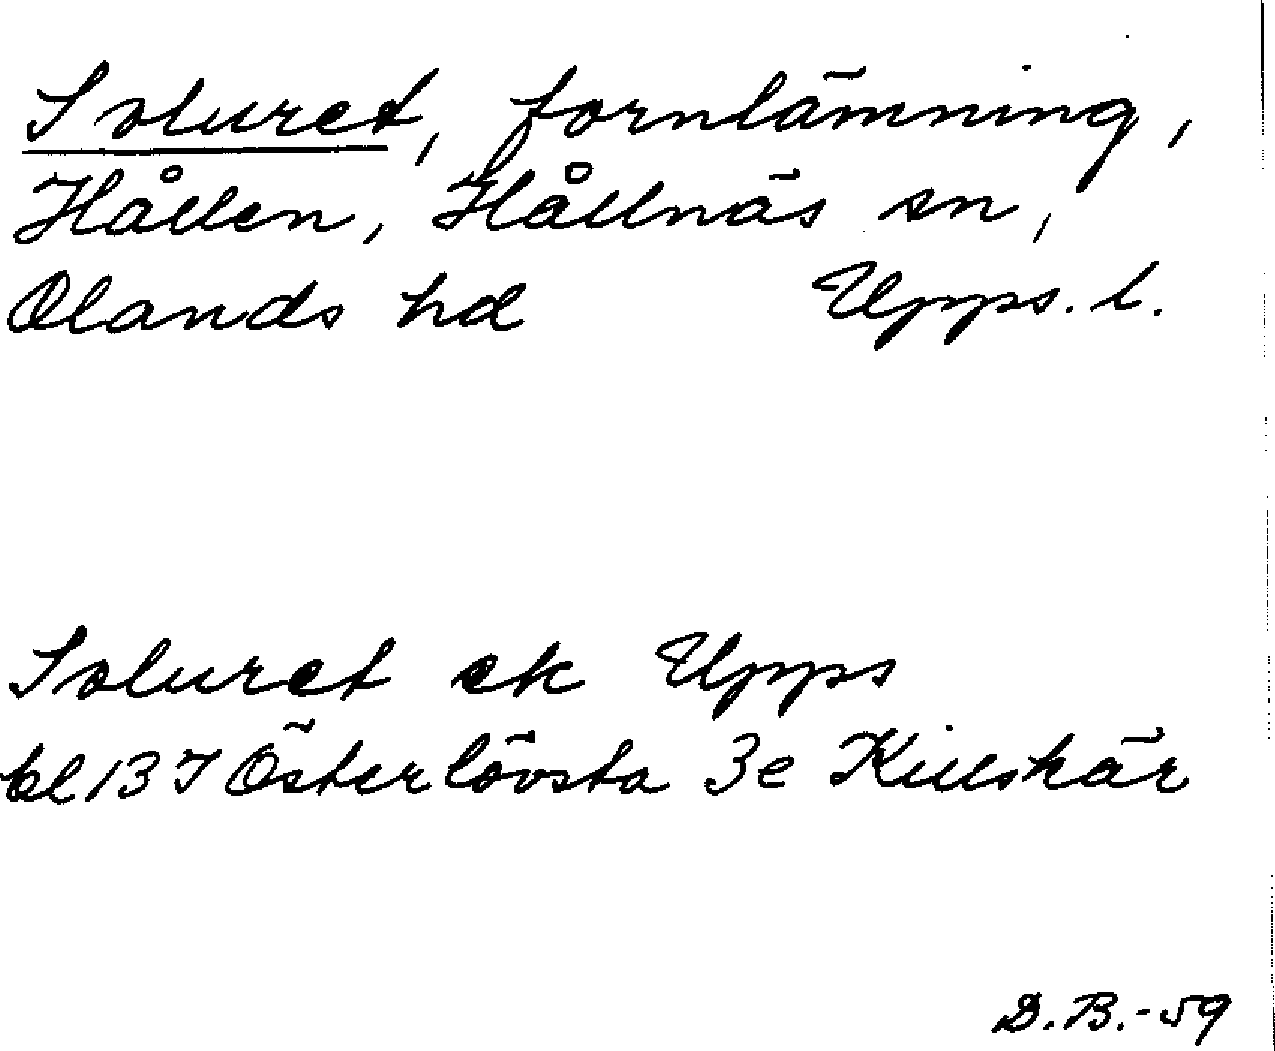 Soluret, fornlämning,
Hållen, Hållnäs sn,
Olands hd Upps. l.
Soluret ek Upps
bl 13 I Österlövsta 3e Killskär
D.B.-59